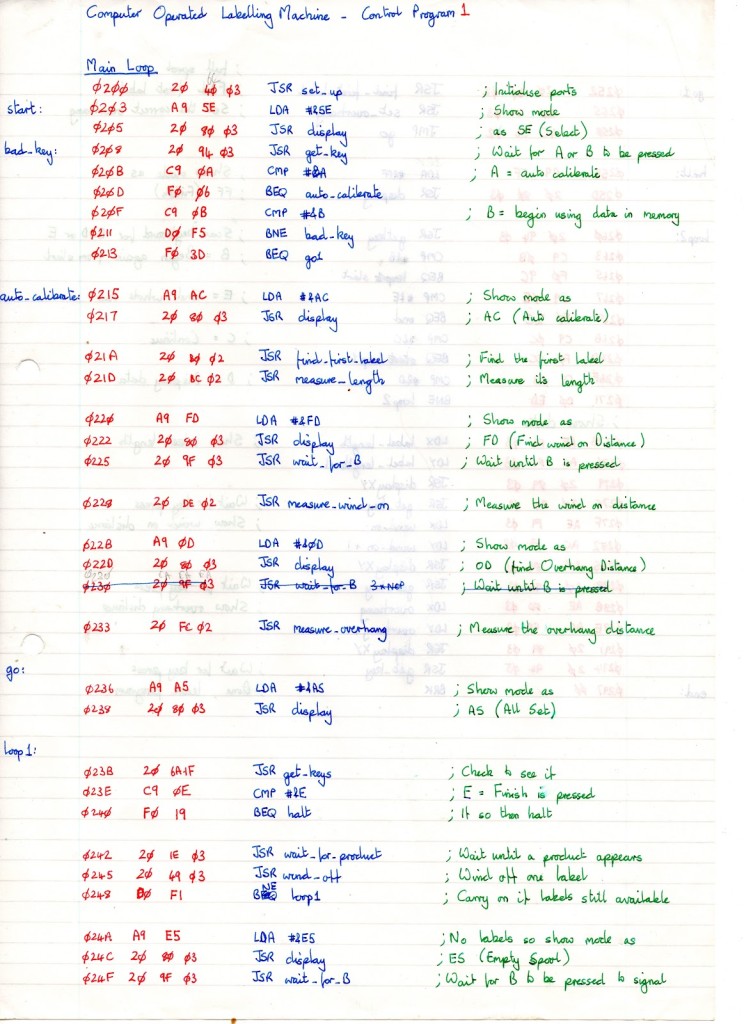 Computer Operated Labelling Machine - Control Program 1
Main Loop
Ø2ØØ 2Ø 4Ø Ø3 JSR set_up ; Initialise ports
start: Ø2Ø3 A9 5E LDA #&5E ; Show mode
Ø2Ø5 2Ø 8Ø Ø3 JSR display ; as SE (Select)
bad_key: Ø2Ø8 2Ø 94 Ø3 JSR get_key ; Wait for A or B to be pressed
Ø2ØB C9 ØA CMP #&A ; A = auto calibrate
Ø2ØD FØ Ø6 BEQ auto_calibrate
Ø2ØF C9 ØB CMP #&B ; B = begin using data in memory
Ø211 DØ F5 BNE bad_key
Ø213 FØ 3D BEQ go1
auto_calibrate: Ø215 A9 AC LDA #&AC ; Show mode as
Ø217 2Ø 8Ø Ø3 JSR display ; AC (Auto calibrate)
Ø21A 2Ø BØ Ø2 JSR find_first_label ; Find the first label
Ø21D 2Ø BC Ø2 JSR measure_length ; Measure its length
Ø22Ø A9 FD LDA #&FD ; Show mode as
Ø222 2Ø 8Ø Ø3 JSR display ; FD (Find wind on Distance)
Ø225 2Ø 9F Ø3 JSR wait_for_B ; Wait until B is pressed
Ø228 2Ø DE Ø2 JSR measure_wind_on ; Measure the wind on distance
Ø22B A9 ØD LDA #&ØD ; Show mode as
Ø22D 2Ø 8Ø Ø3 JSR display ; OD (find Overhang Distance)
Ø23Ø 2Ø 9F Ø3 JSR wait_for_B 3xNOP ; Wait until B is pressed
Ø233 2Ø FC Ø2 JSR measure_overhang ; Measure the overhang distance
go:
Ø236 A9 A5 LDA #&A5 ; Show mode as
Ø238 2Ø 8Ø Ø3 JSR display ; AS (All Set)
loop1:
Ø23B 2Ø 6A 1F JSR get_keys ; Check to see if
Ø23E C9 ØE CMP #&E ; E = Finish is pressed
Ø24Ø FØ 19 BEQ halt ; If so then halt
Ø242 2Ø 1E Ø3 JSR wait_for_product ; Wait until a product appears
Ø245 2Ø 49 Ø3 JSR wind_off ; Wind off one label
Ø248 DØ F1 BNE loop1 ; Carry on if labels still available
Ø24A A9 E5 LDA #&E5 ; No labels so show mode as
Ø24C 2Ø 8Ø Ø3 JSR display ; ES (Empty Spool)
Ø24F 2Ø 9F Ø3 JSR wait_for_B ; Wait for B to be pressed to signal